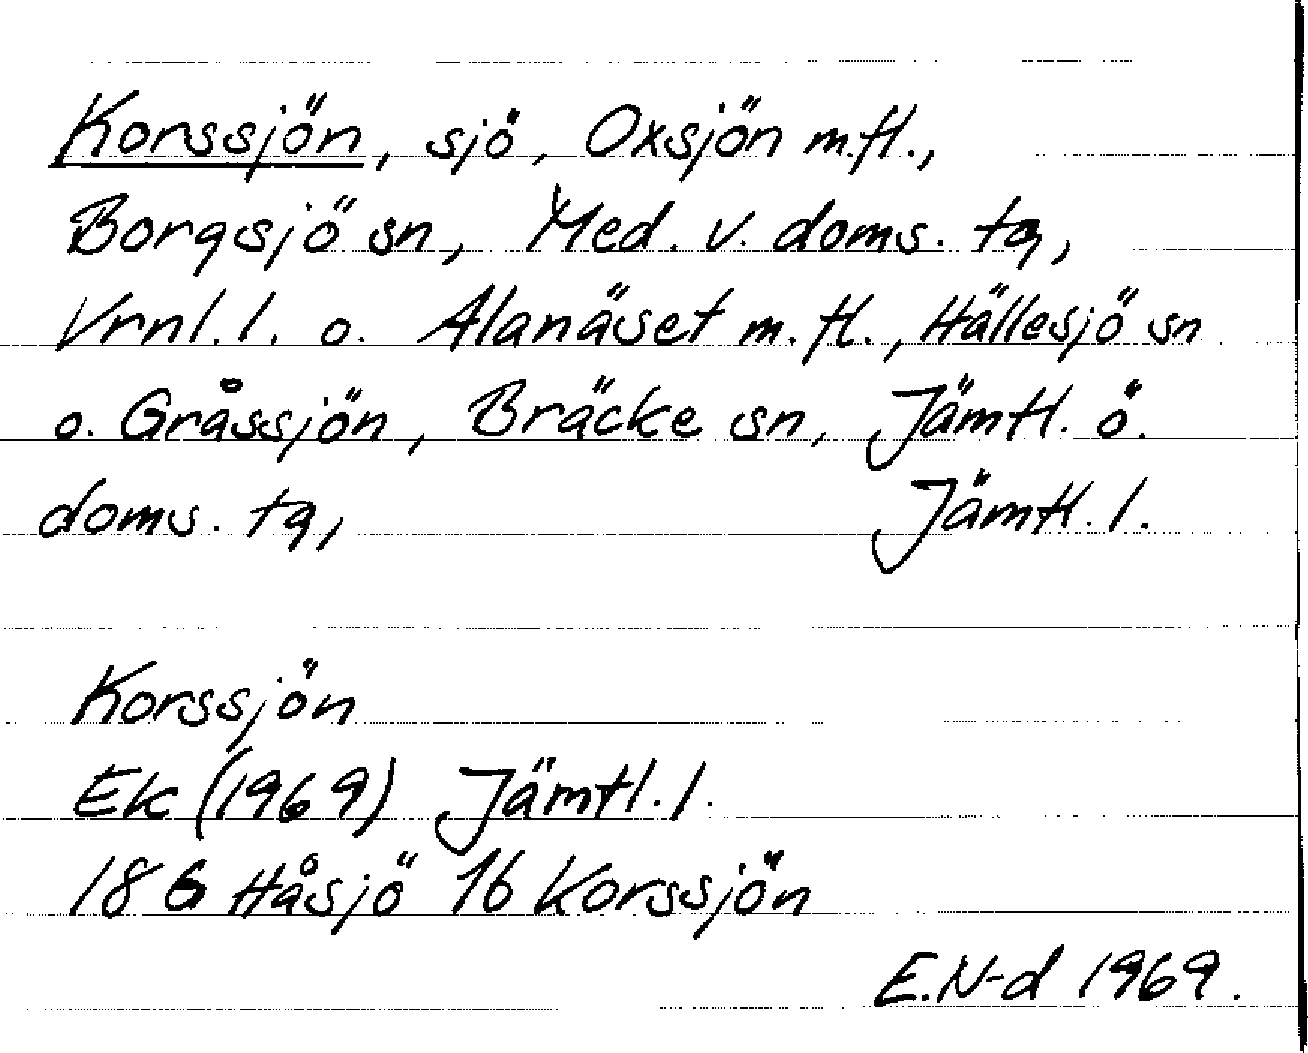 Korssjön, sjö, Oxsjön m.fl.,
Borgsjö sn, Med. v. doms. tg,
Vrnl. l. o. Alanäset m. fl., Hällesjö sn
o. Gråssjön, Bräcke sn, Jämtl. ö.
doms. tg, Jämtl. l.
Korssjön
Ek (1969) Jämtl. l.
18 G Håsjö 1b Korssjön
E.N-d 1969.